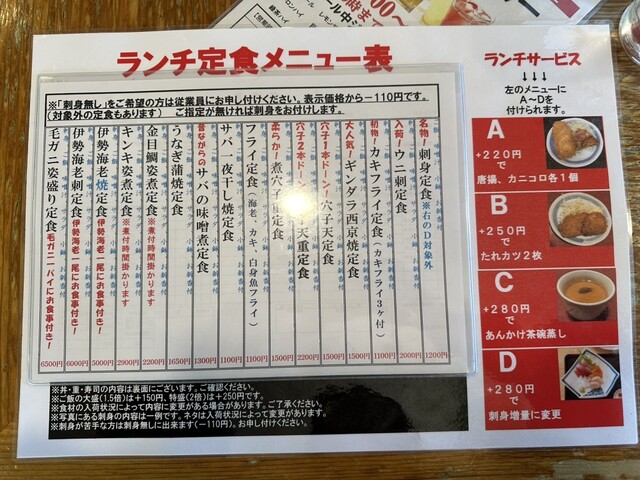 ランチ定食メニュー表
※「刺身無し」をご希望の方は従業員にお申し付けください。表示価格から－110円です。
(対象外の定食もあります) ご指定が無ければ刺身をお付けします。
名物！刺身定食 ※右のD対象外 1200円
入荷！ウニ刺定食 2000円
初物！カキフライ定食（カキフライ3ヶ付） 1100円
大人気！ギンダラ西京焼定食 1500円
穴子1本ドーン！穴子天定食 1500円
穴子2本ドーン！ 天重定食 2200円
柔らか！煮穴子 重定食 1500円
フライ定食（海老、カキ、白身魚フライ） 1100円
サバ一夜干し焼定食 1100円
昔ながらのサバの味噌煮定食 1300円
うなぎ蒲焼定食 1650円
金目鯛姿煮定食 ※煮付時間掛かります 2200円
キンキ姿煮定食 ※煮付時間掛かります 2900円
伊勢海老焼定食 伊勢海老一尾にお食事付き！ 5000円
伊勢海老刺定食 伊勢海老一尾にお食事付き！ 6000円
毛ガニ姿盛り定食 毛ガニ一パイにお食事付き！ 6500円
※丼・重・寿司の内容は裏面にございます。ご確認ください。
※ご飯の大盛(1.5倍)は＋150円、特盛(2倍)は＋250円です。
※食材の入荷状況によって内容に変更がある場合があります。ご了承ください。
※写真にある刺身の内容は一例です。ネタは入荷状況によって変更があります。
※刺身が苦手な方は刺身無しに出来ます(－110円)。お申し付けください。
ランチサービス
↓↓↓
左のメニューに
A～Dを
付けられます。
A
+220円
で
唐揚、カニコロ各1個
B
+250円
で
たれカツ2枚
C
+280円
で
あんかけ茶碗蒸し
D
+280円
で
刺身増量に変更